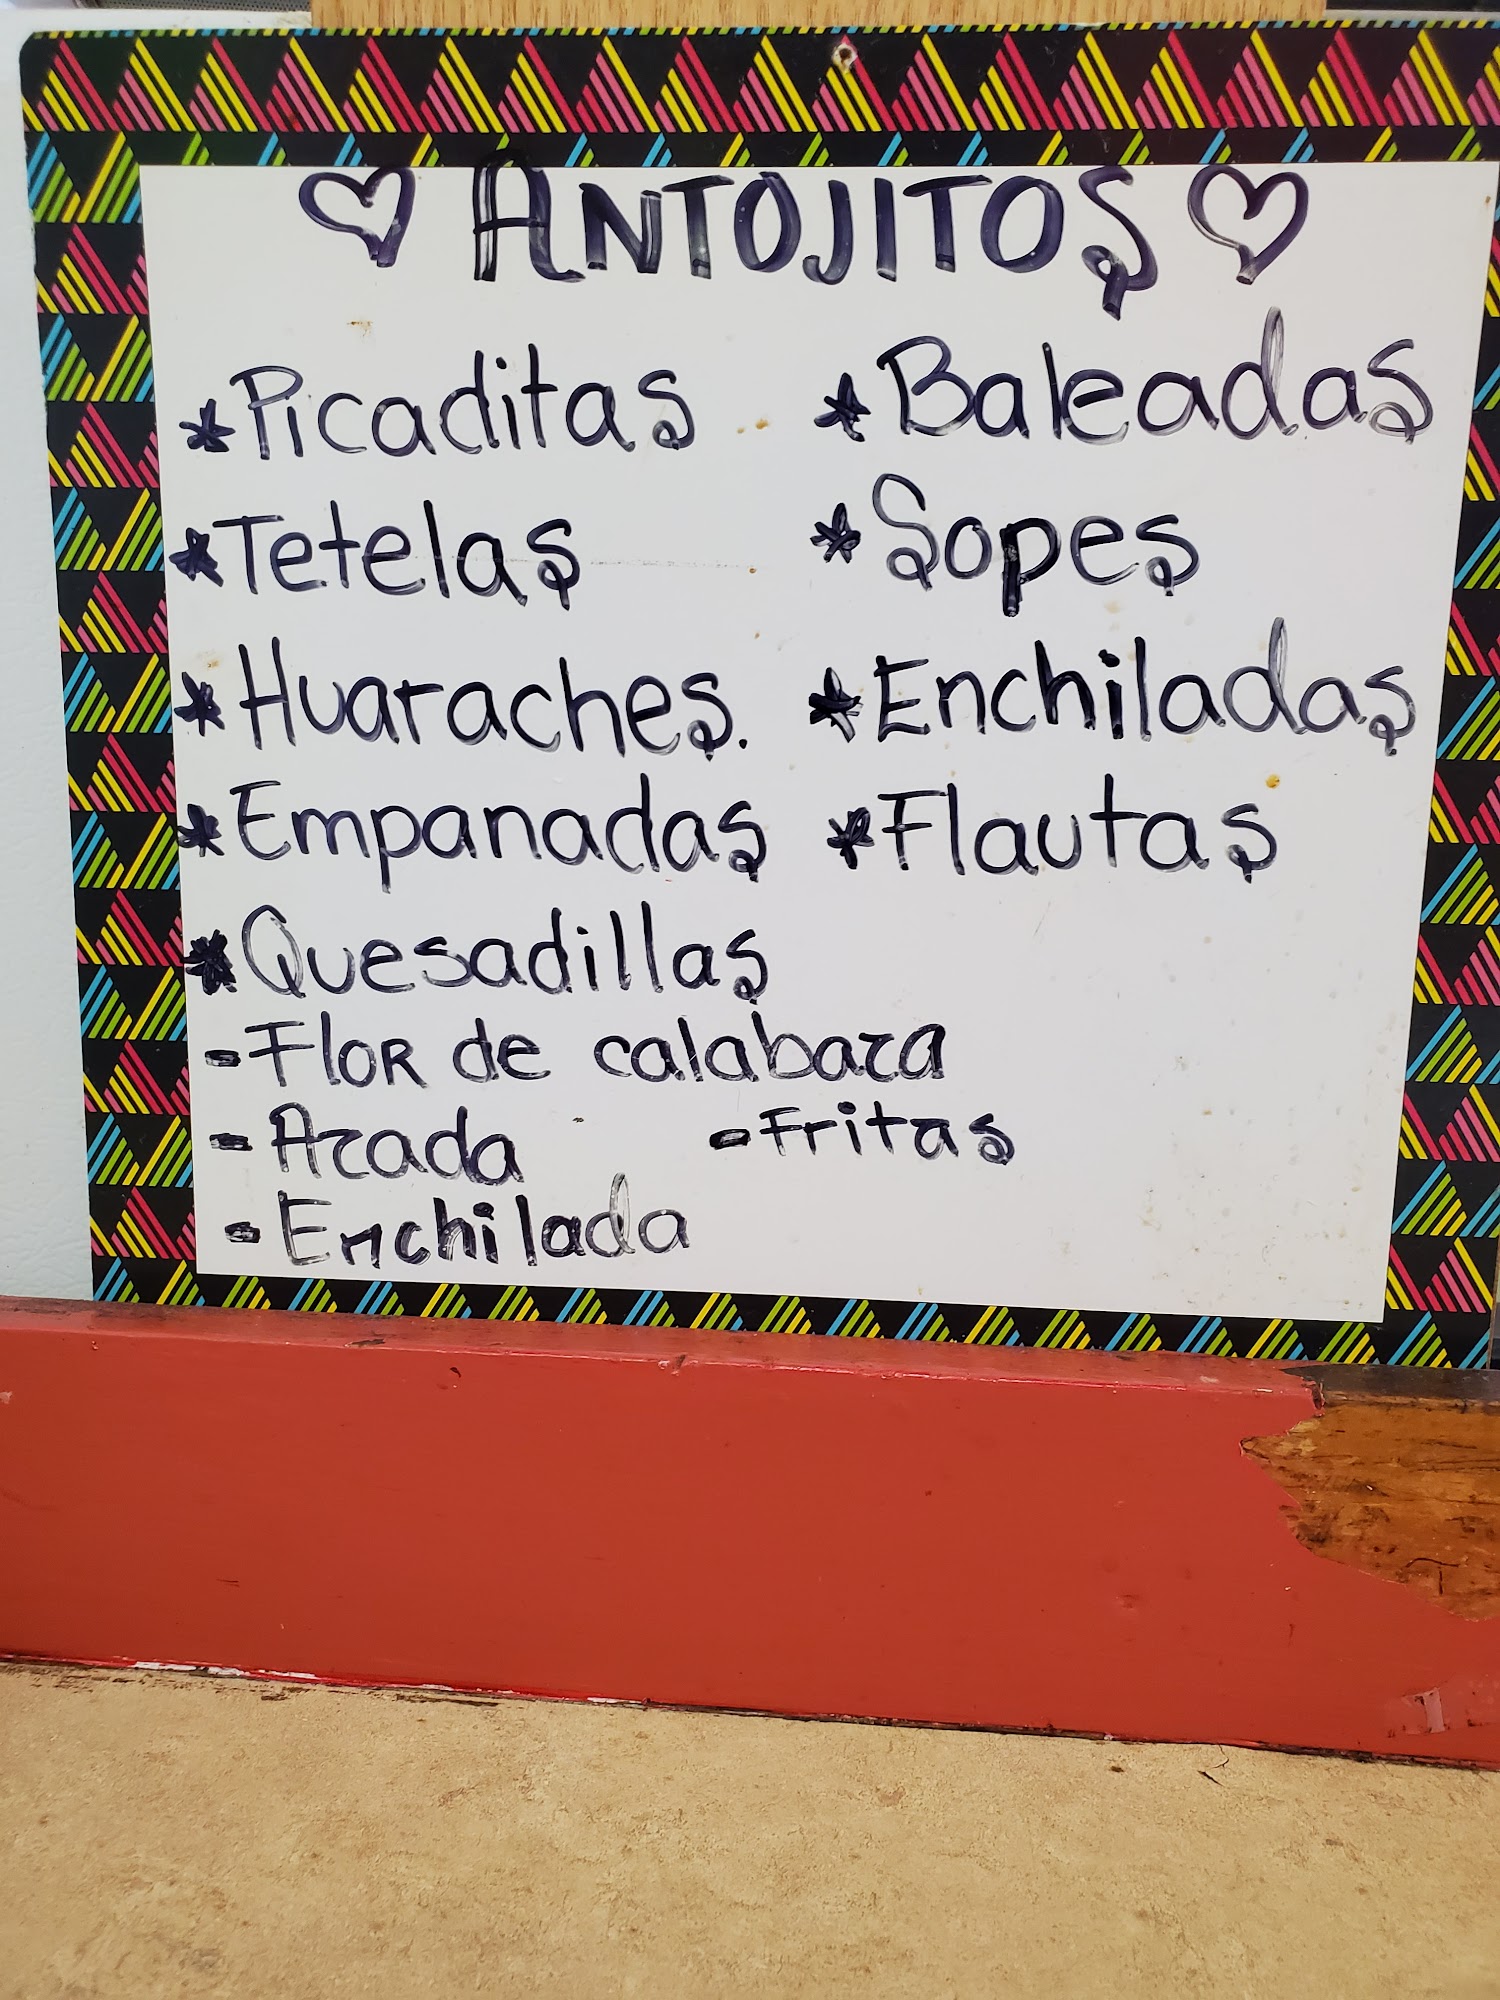 ♡ ANTOJITOS ♡
*Picaditas
*Tetelas
*Huaraches.
*Empanadas
*Quesadillas
-Flor de calabaza
-Azada
-Enchilada
-Fritas
*Baleadas
*Sopes
*Enchiladas
*Flautas